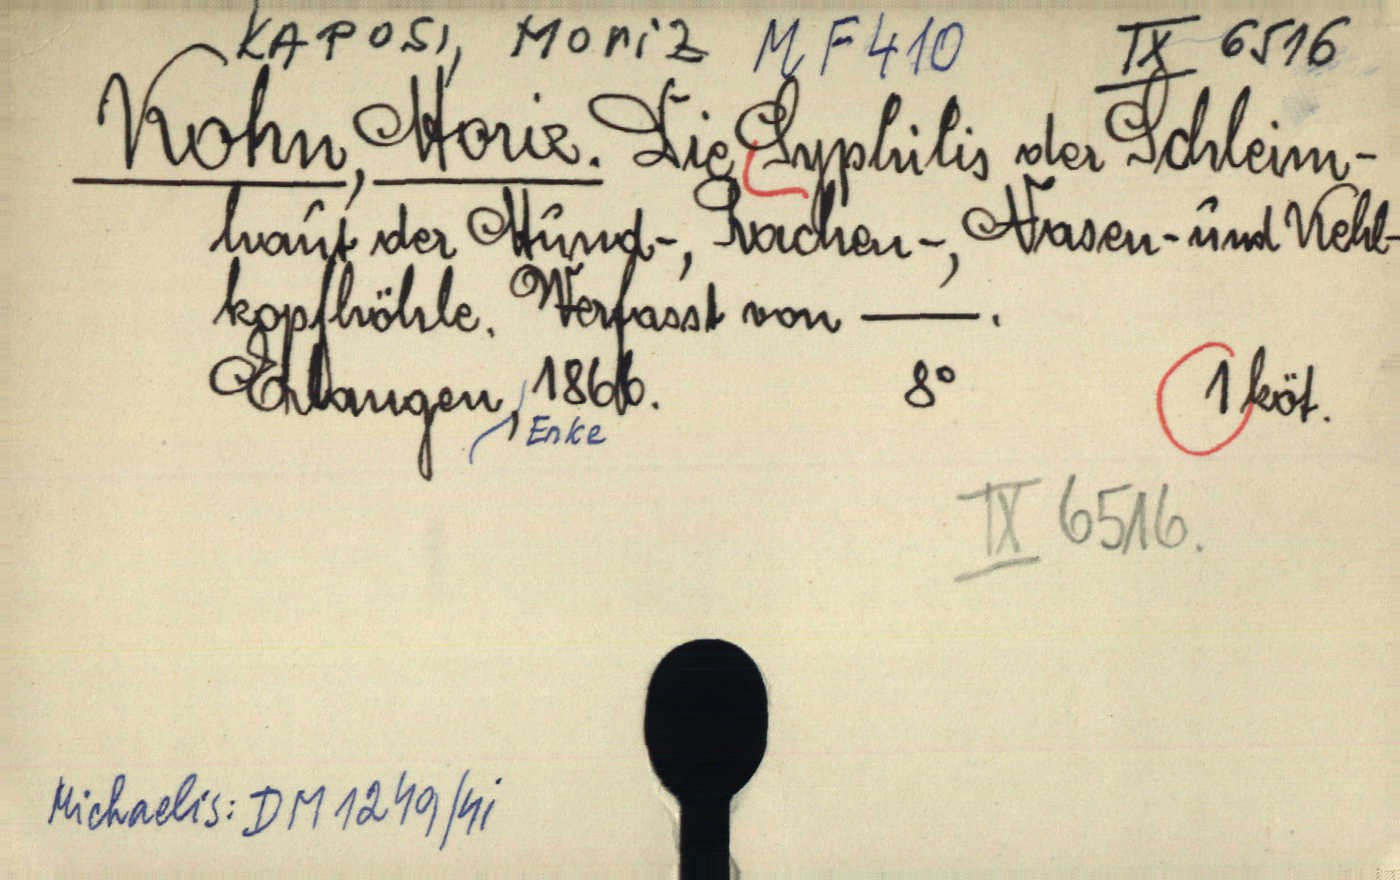 KAPOSI, Moriz MF 410 IX 6516
Kohn, Moriz. Die Syphilis der Schleim-
haut der Mund-, Rachen-, Nasen- und Kehl-
kopfhöhle. Verfasst von ——.
Erlangen, 1866. 8° 1 köt.
Enke
IX 6516.
Michaelis: DM 1249/41